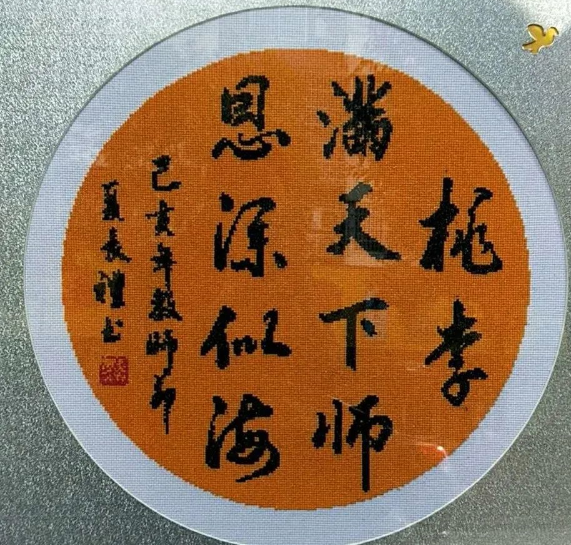 桃李
满天下师
恩深似海
己亥年教师节
夏长礼书